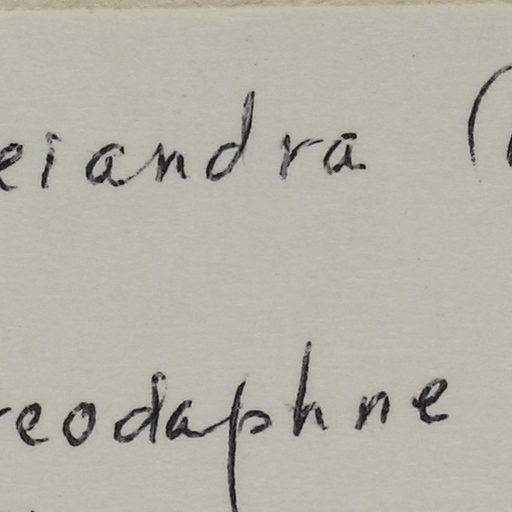 eiandra (
reodaphne